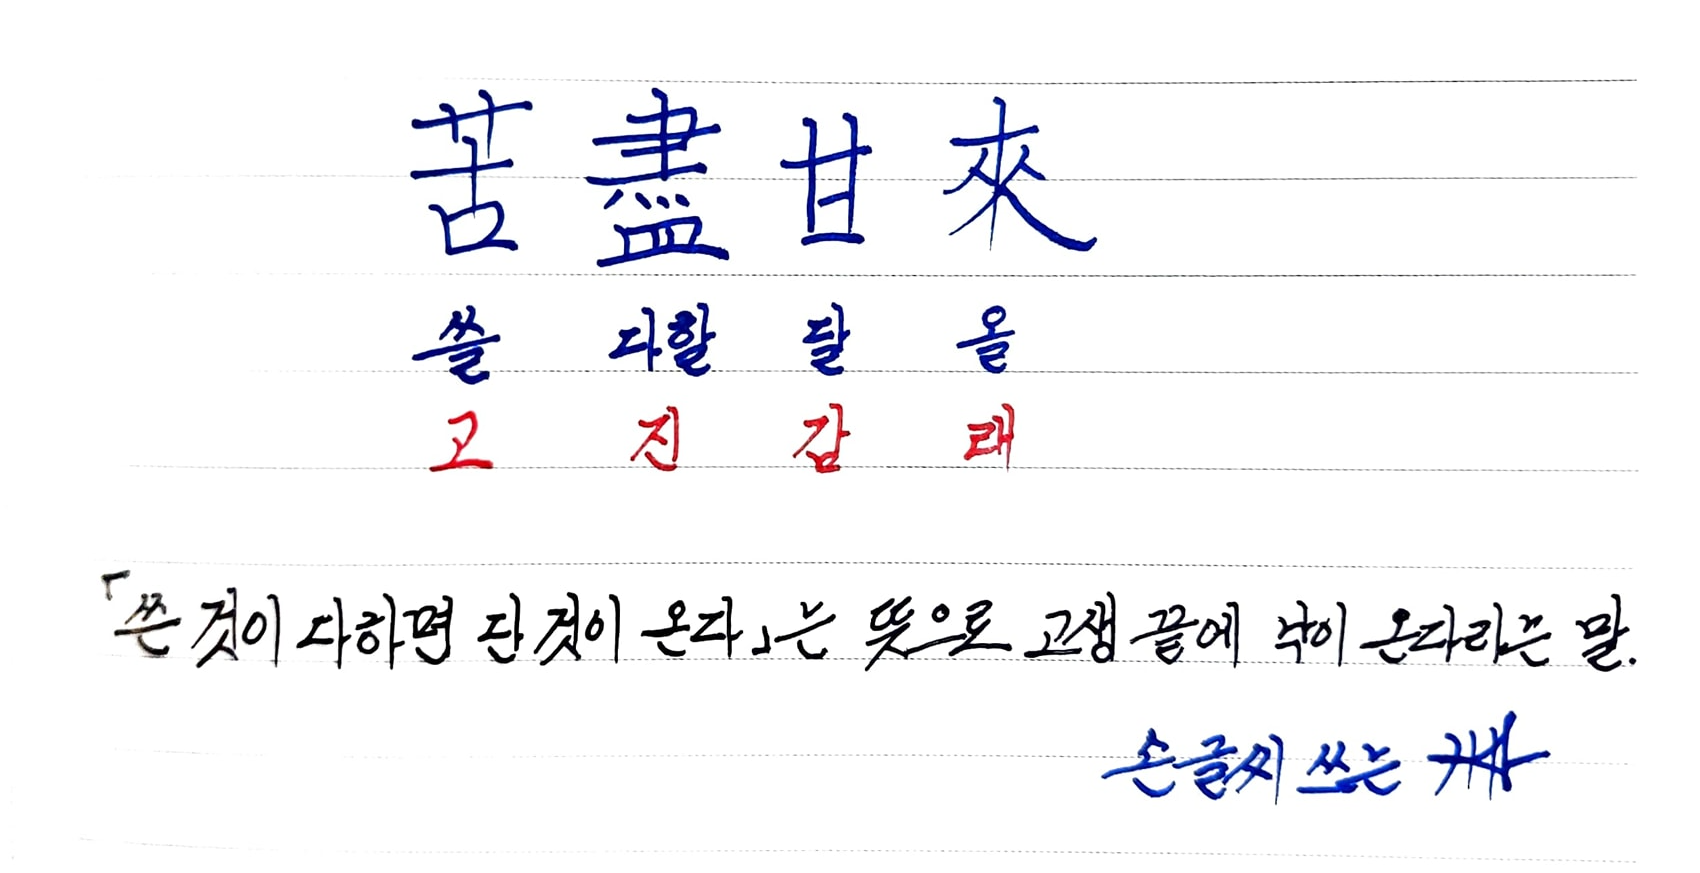 苦 盡 甘 來
쓸 다할 달 올
고 진 감 래
「쓴 것이 다하면 단 것이 온다」는 뜻으로 고생 끝에 낙이 온다라는 말.
손글씨 쓰는